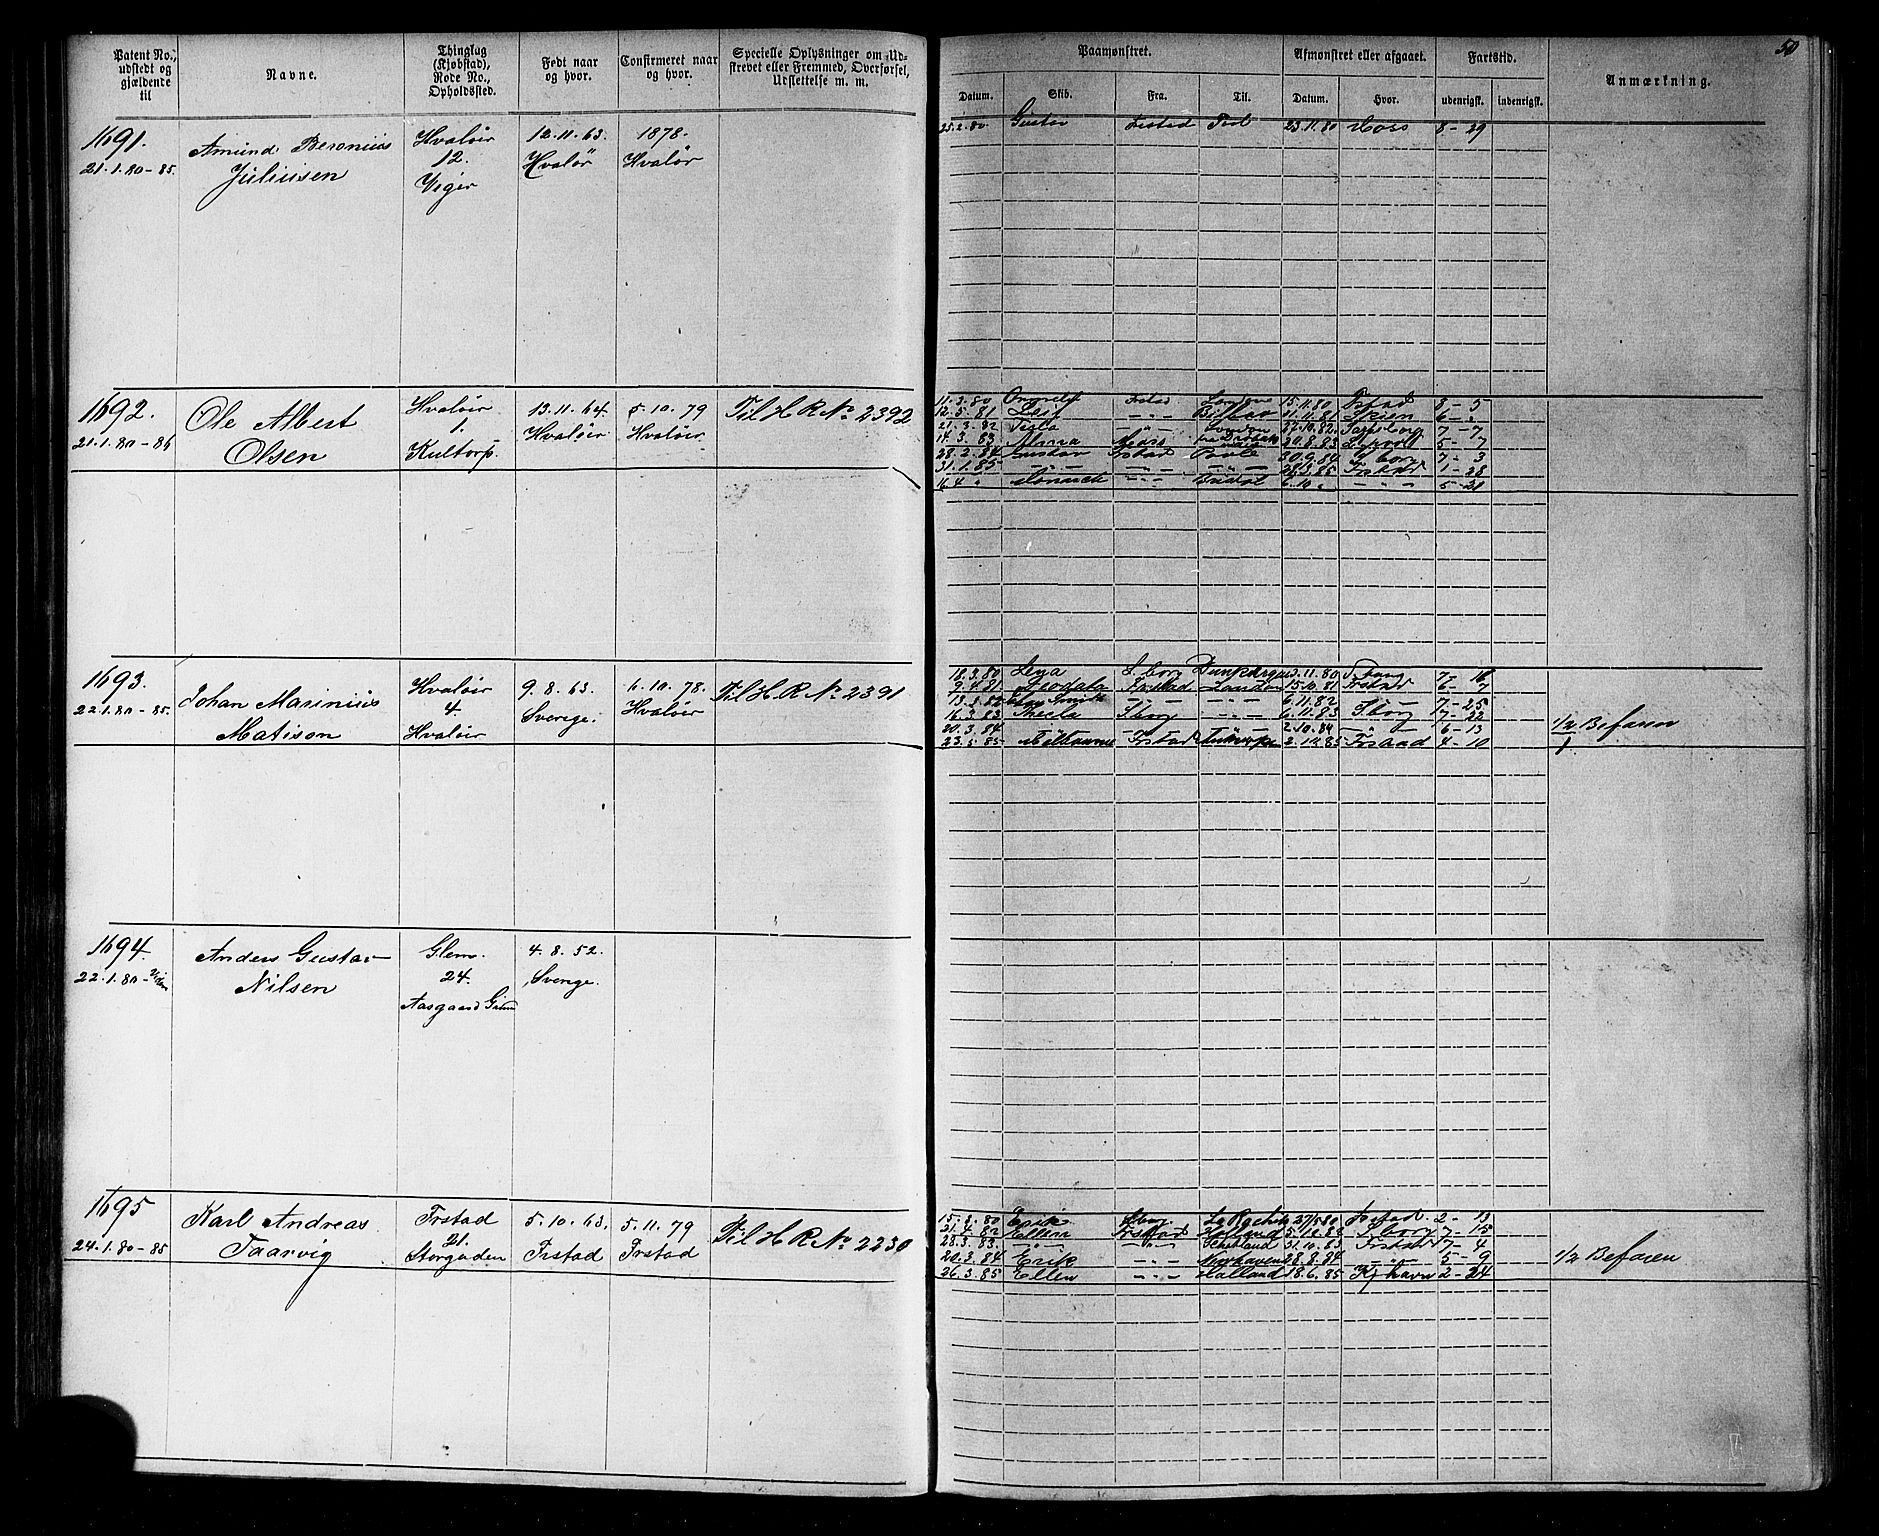 50
Patent No., udstedt og gjældende til
Navne.
Thinglag (Kjøbstad), Rode No., Opholdssted.
Født naar og hvor.
Confirmeret naar og hvor.
Specielle Oplysninger om Udskrevet eller Fremmed, Overførsel, Udslettelse m. m.
Paamønstret.
Afmønstret eller afgaaet.
Fartstid.
Anmærkning.
Datum. Skib. Fra. Til. Datum. Hvor. udenrigsk. indenrigsk.
1691.
21.1.80-85.
Amund Beronius
Juliusen
Hvaløer
12.
Viger
12.11.63.
Hvalør
1878.
Hvalør
25.2.80 Gustav Frstad 23.11.80 Moss 8-29
1692.
21.1.80-86
Ole Albert
Olsen
Hvaløer
1.
Kultorp.
13.11.64.
Hvaløer
5.10.79
Hvaløer
Til H. R. No. 2392
11.3.80 Frstad London 15.11.80 Frstad 8-5
12.5.81 Leif -"- Bilbao 11.11.81 Skien 6-
21.3.82 -"- London 27.10.82 Sarpsborg 7-7
14.3.83 Alma Moss 20.8.83 5-7
28.2.84 Gustav Frstad 30.9.84 S.borg 7-3
31.1.85 -"- -"- -"- 28.3.85 Frstad 1-28
16.4 " Monarch -"- 6.10 " -"- 5-21
1693.
22.1.80-85.
Johan Marinius
Matison
Hvaløer
4.
Hvaløer
9.8.63.
Sverige.
6.10.78.
Hvaløer
Til H. R. No. 2391
18.3.80 S.borg 3.11.80 S.borg 7-16
9.4.81 Frstad London 15.10.81 Frstad 6-7
13.3.82 -"- -"- 6.11.82 -"- 7-25
16.3.83 Thecla S.borg -"- 6.11.83 S.borg 7-22
20.3.84 -"- -"- -"- 2.10.84 -"- 6-13 1/2 Befaren
23.5.85 Frstad 2.10.85 Frstad 4-10
1694.
22.1.80-
Anders Gustav
Nilsen
Glem.
24.
Aasgaard
4.8.52.
Sverige.
1695
24.1.80-85
Karl Andreas
Taarvig
Frstad
21.
Storgaden
5.10.63.
Frstad
5.11.79
Frstad
Til H. R. No. 2230
15.3.80 Erik S.borg 27/5 80 Frstad 2-
21.4.82 Ellen Frstad 5.12.82 S.borg 7-15
28.3.83 " -"- 31.10.83 Frstad 7-4
20.3.84 Erik -"- 28.8.84 -"- 5-9 1/2 Befaren
26.3.85 Ellen -"- Holland 18.6.85 Kj.havn 2-24